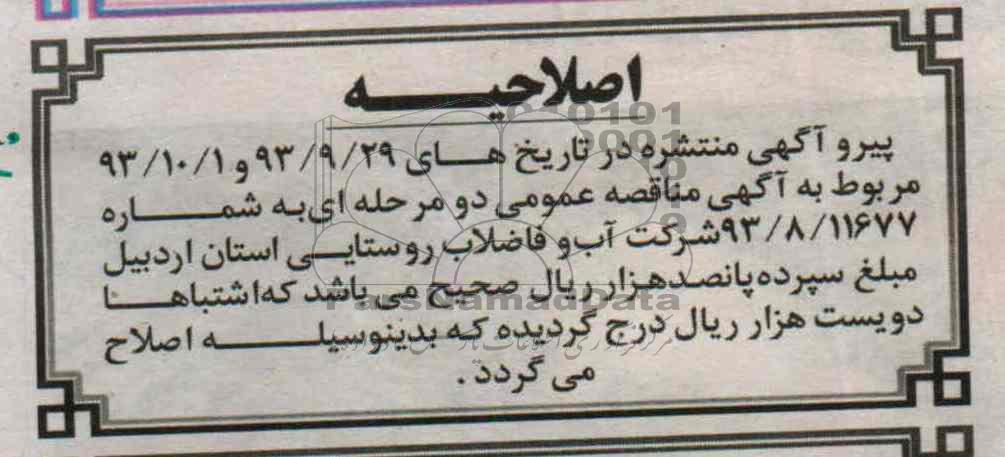 اصلاحیه
پیرو آگهی منتشره در تاریخ های ۹۳/۹/۲۹ و ۹۳/۱۰/۱
مربوط به آگهی مناقصه عمومی دو مرحله ای به شماره
۹۳/۸/۱۱۶۷۷ شرکت آب و فاضلاب روستایی استان اردبیل
مبلغ سپرده پانصد هزار ریال صحیح می باشد که اشتباها
دویست هزار ریال درج گردیده که بدینوسیله اصلاح
می گردد .
ParsNamadData